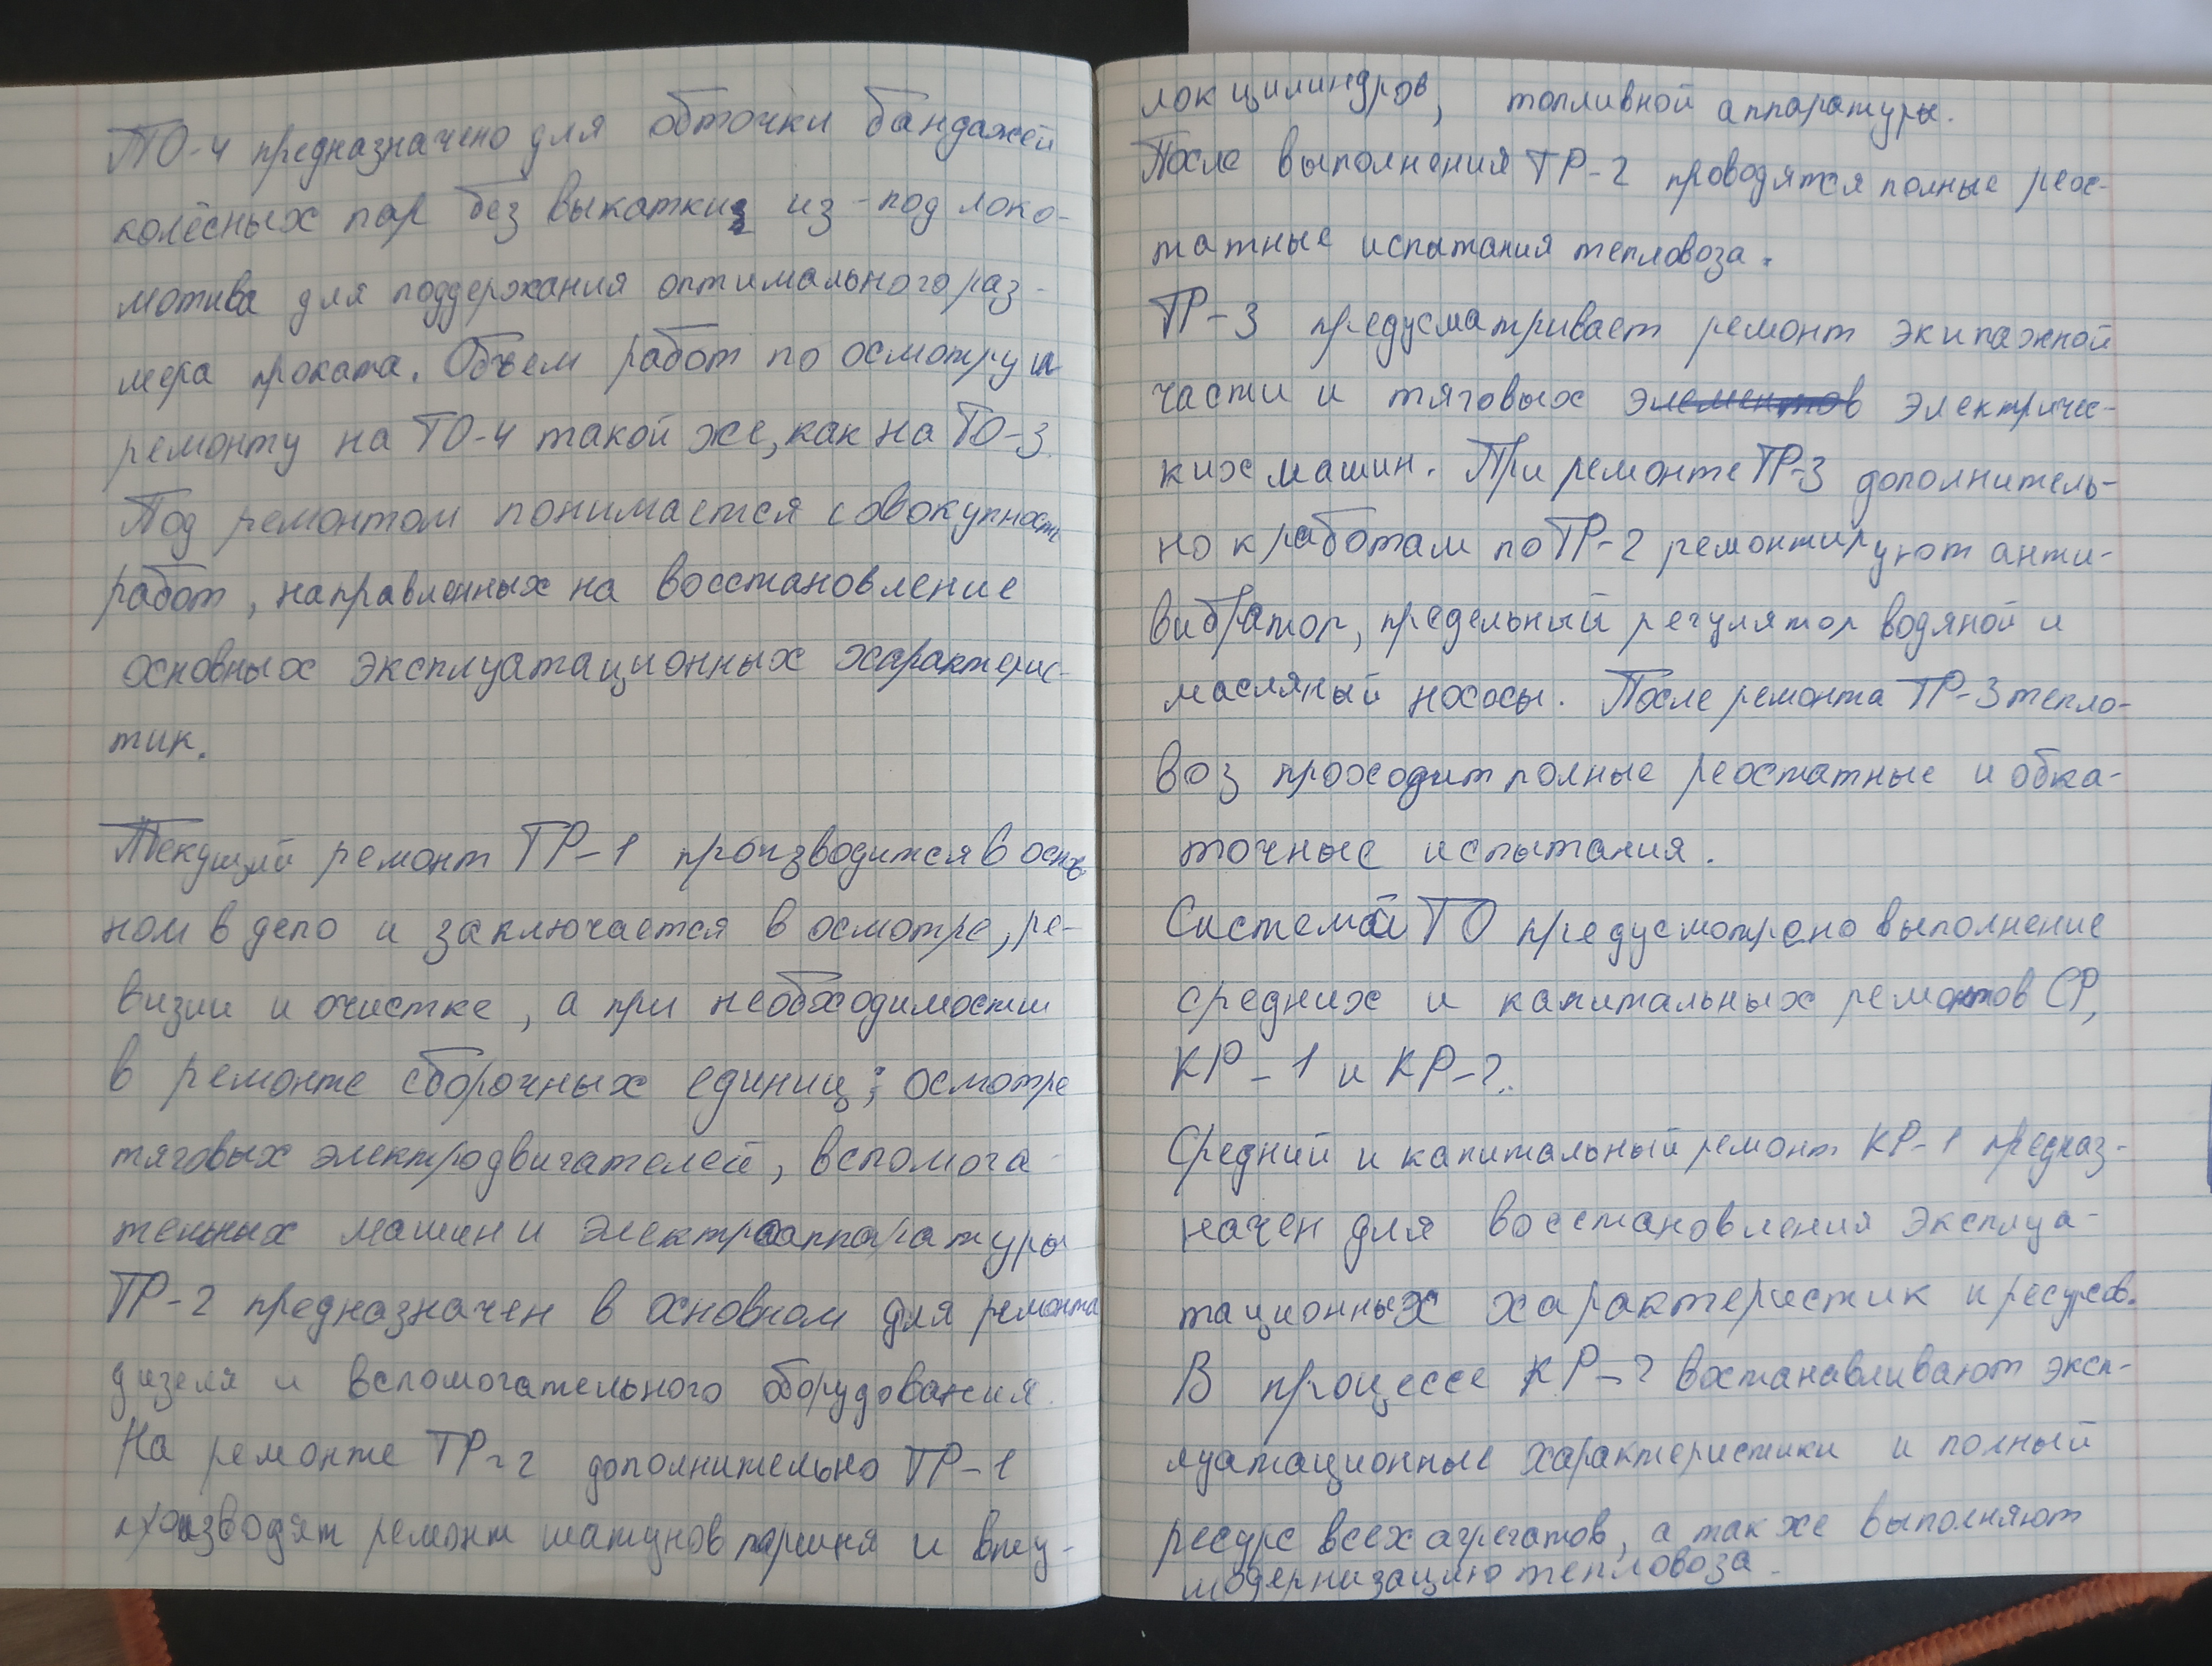 ТО-4 предназначено для обточки бандажей
колёсных пар без выкатки из-под локо-
мотива для поддержания оптимального раз-
мера проката. Объем работ по осмотру и
ремонту на ТО-4 такой же, как на ТО-3.
Под ремонтом понимается совокупность
работ, направленных на восстановление
основных эксплуатационных характерис-
тик.
Текущий ремонт ТР-1 производится в основ
ном в депо и заключается в осмотре, ре-
визии и очистке, а при необходимости
в ремонте сборочных единиц; осмотре
тяговых электродвигателей, вспомога-
тельных машин и электроаппаратуры
ТР-2 предназначен в основном для ремонта
дизеля и вспомогательного оборудования.
На ремонте ТР-2 дополнительно ТР-1
производят ремонт шатунов поршня и вту-
лок цилиндров, топливной аппаратуры.
После выполнения ТР-2 проводятся полные реос-
татные испытания тепловоза.
ТР-3 предусматривает ремонт экипажной
части и тяговых элементов электричес-
ких машин. При ремонте ТР-3 дополнитель-
но к работам по ТР-2 ремонтируют анти-
вибратор, предельный регулятор водяной и
масляный насосы. После ремонта ТР-3 тепло-
воз проходит полные реостатные и обка-
точные испытания.
Системой ТО предусмотрено выполнение
средних и капитальных ремонтов СР,
КР-1 и КР-2.
Средний и капитальный ремонт КР-1 предназ-
начен для восстановления эксплуа-
тационных характеристик и ресурсов.
В процессе КР-2 востанавливают эксп-
луатационные характеристики и полный
ресурс всех агрегатов, а так же выполняют
модернизацию тепловоза.